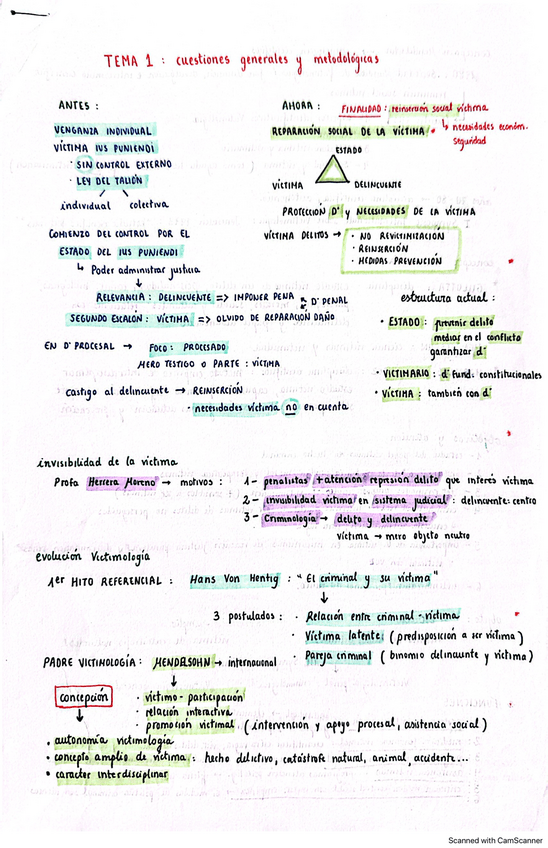 TEMA 1 : cuestiones generales y metodológicas
ANTES :
VENGANZA INDIVIDUAL
VÍCTIMA IUS PUNIENDI
· SIN CONTROL EXTERNO
· LEY DEL TALIÓN
individual colectiva
COMIENZO DEL CONTROL POR EL
ESTADO DEL IUS PUNIENDI
↳ Poder administrar justicia
↓
RELEVANCIA : DELINCUENTE => IMPONER PENA
D' PENAL
SEGUNDO ESCALÓN : VÍCTIMA => OLVIDO DE REPARACIÓN DAÑO
EN D' PROCESAL → FOCO : PROCESADO
MERO TESTIGO O PARTE : VÍCTIMA
castigo al delincuente → REINSERCIÓN
· necesidades víctima no en cuenta
AHORA : FINALIDAD : reinserción social víctima
REPARACIÓN SOCIAL DE LA VÍCTIMA
↳ necesidades económ.
seguridad
ESTADO
VÍCTIMA DELINCUENTE
PROTECCIÓN D' y NECESIDADES DE LA VÍCTIMA
VÍCTIMA DELITOS →
· NO REVICTIMIZACIÓN
· REINSERCIÓN
· MEDIDAS PREVENCIÓN
estructura actual :
· ESTADO : prevenir delito
mediar en el conflicto
garantizar d'
· VICTIMARIO : d' fund. constitucionales
· VÍCTIMA : también con d'
invisibilidad de la víctima
Profa Herrera Moreno → motivos : 1- penalistas + atención represión delito que interés víctima
2- invisibilidad víctima en sistema judicial : delincuente: centro
3- Criminología → delito y delincuente
víctima → mero objeto neutro
evolución Victimología
1er HITO REFERENCIAL : Hans Von Hentig : "El criminal y su víctima"
↓
3 postulados : · Relación entre criminal-víctima
· Víctima latente: (predisposición a ser víctima)
· Pareja criminal (binomio delincuente y víctima)
PADRE VICTIMOLOGÍA : MENDELSOHN → internacional
↓
concepción
· víctimo-participación
· relación interactiva
· promoción victimal (intervención y apoyo procesal, asistencia social)
↓
· autonomía victimología
· concepto amplio de víctima : hecho delictivo, catástrofe natural, animal, accidente...
· carácter interdisciplinar
Scanned with CamScanner